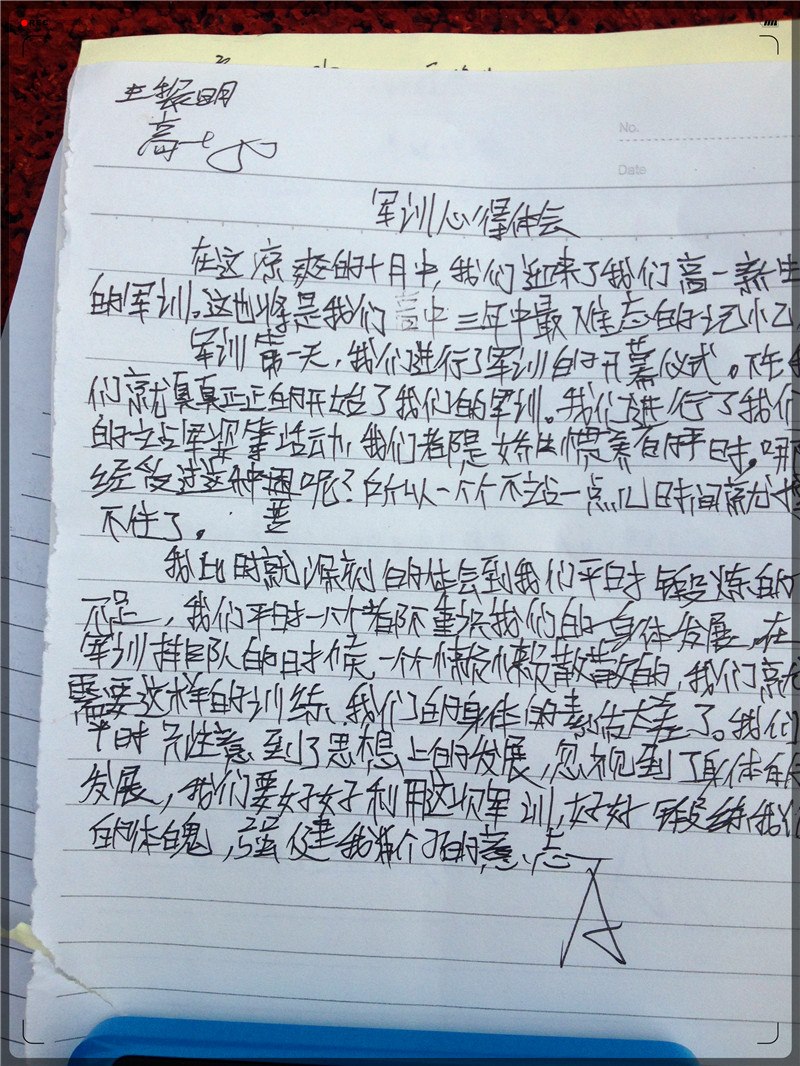 高一
No.
Date
军训心得体会
在这凉爽的十月中,我们迎来了我们高一新生
的军训。这也将是我们高中三年中最难忘的记忆
军训第一天,我们进行了军训的开幕仪式。下午
们就真真正正的开始了我们的军训。我们进行了我们
的站军姿等活动,我们都是娇生惯养的平时,哪
经受过这种 呢?所以一个个不站一点儿时间就
不住了。
我此时就深刻的体会到我们平时锻炼的
不足,我们平时一个个都不重视我们的身体发展,在
军训排队的时候,一个个懒懒散散的,我们就
需要这样的训练,我们的身体的素 太差了。我们
平时只注意到了思想上的发展,忽视到了身体
发展,我们要好好利用这次军训,好好锻练我们
的体魄,强健我们 的意志
A